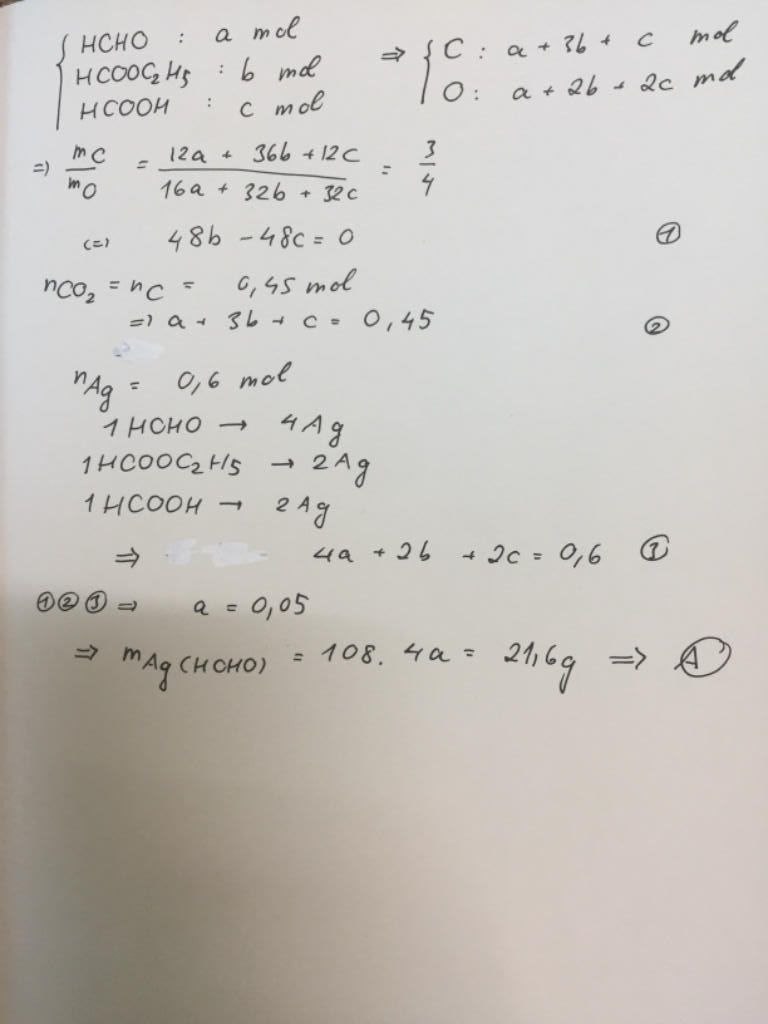 HCHO : a mol ⇒ C : a + 3b + c mol
HCOOC2H5 : b mol O : a + 2b + 2c mol
HCOOH : c mol
=) mC/mO = (12a + 36b + 12c)/(16a + 32b + 32c) = 3/4
(=) 48b - 48c = 0 ①
nCO2 = nC = 0,45 mol
=) a + 3b + c = 0,45 ②
nAg = 0,6 mol
1 HCHO → 4 Ag
1 HCOOC2H5 → 2 Ag
1 HCOOH → 2 Ag
⇒ 4a + 2b + 2c = 0,6 ③
①②③ ⇒ a = 0,05
⇒ mAg(HCHO) = 108. 4a = 21,6g ⇒ A